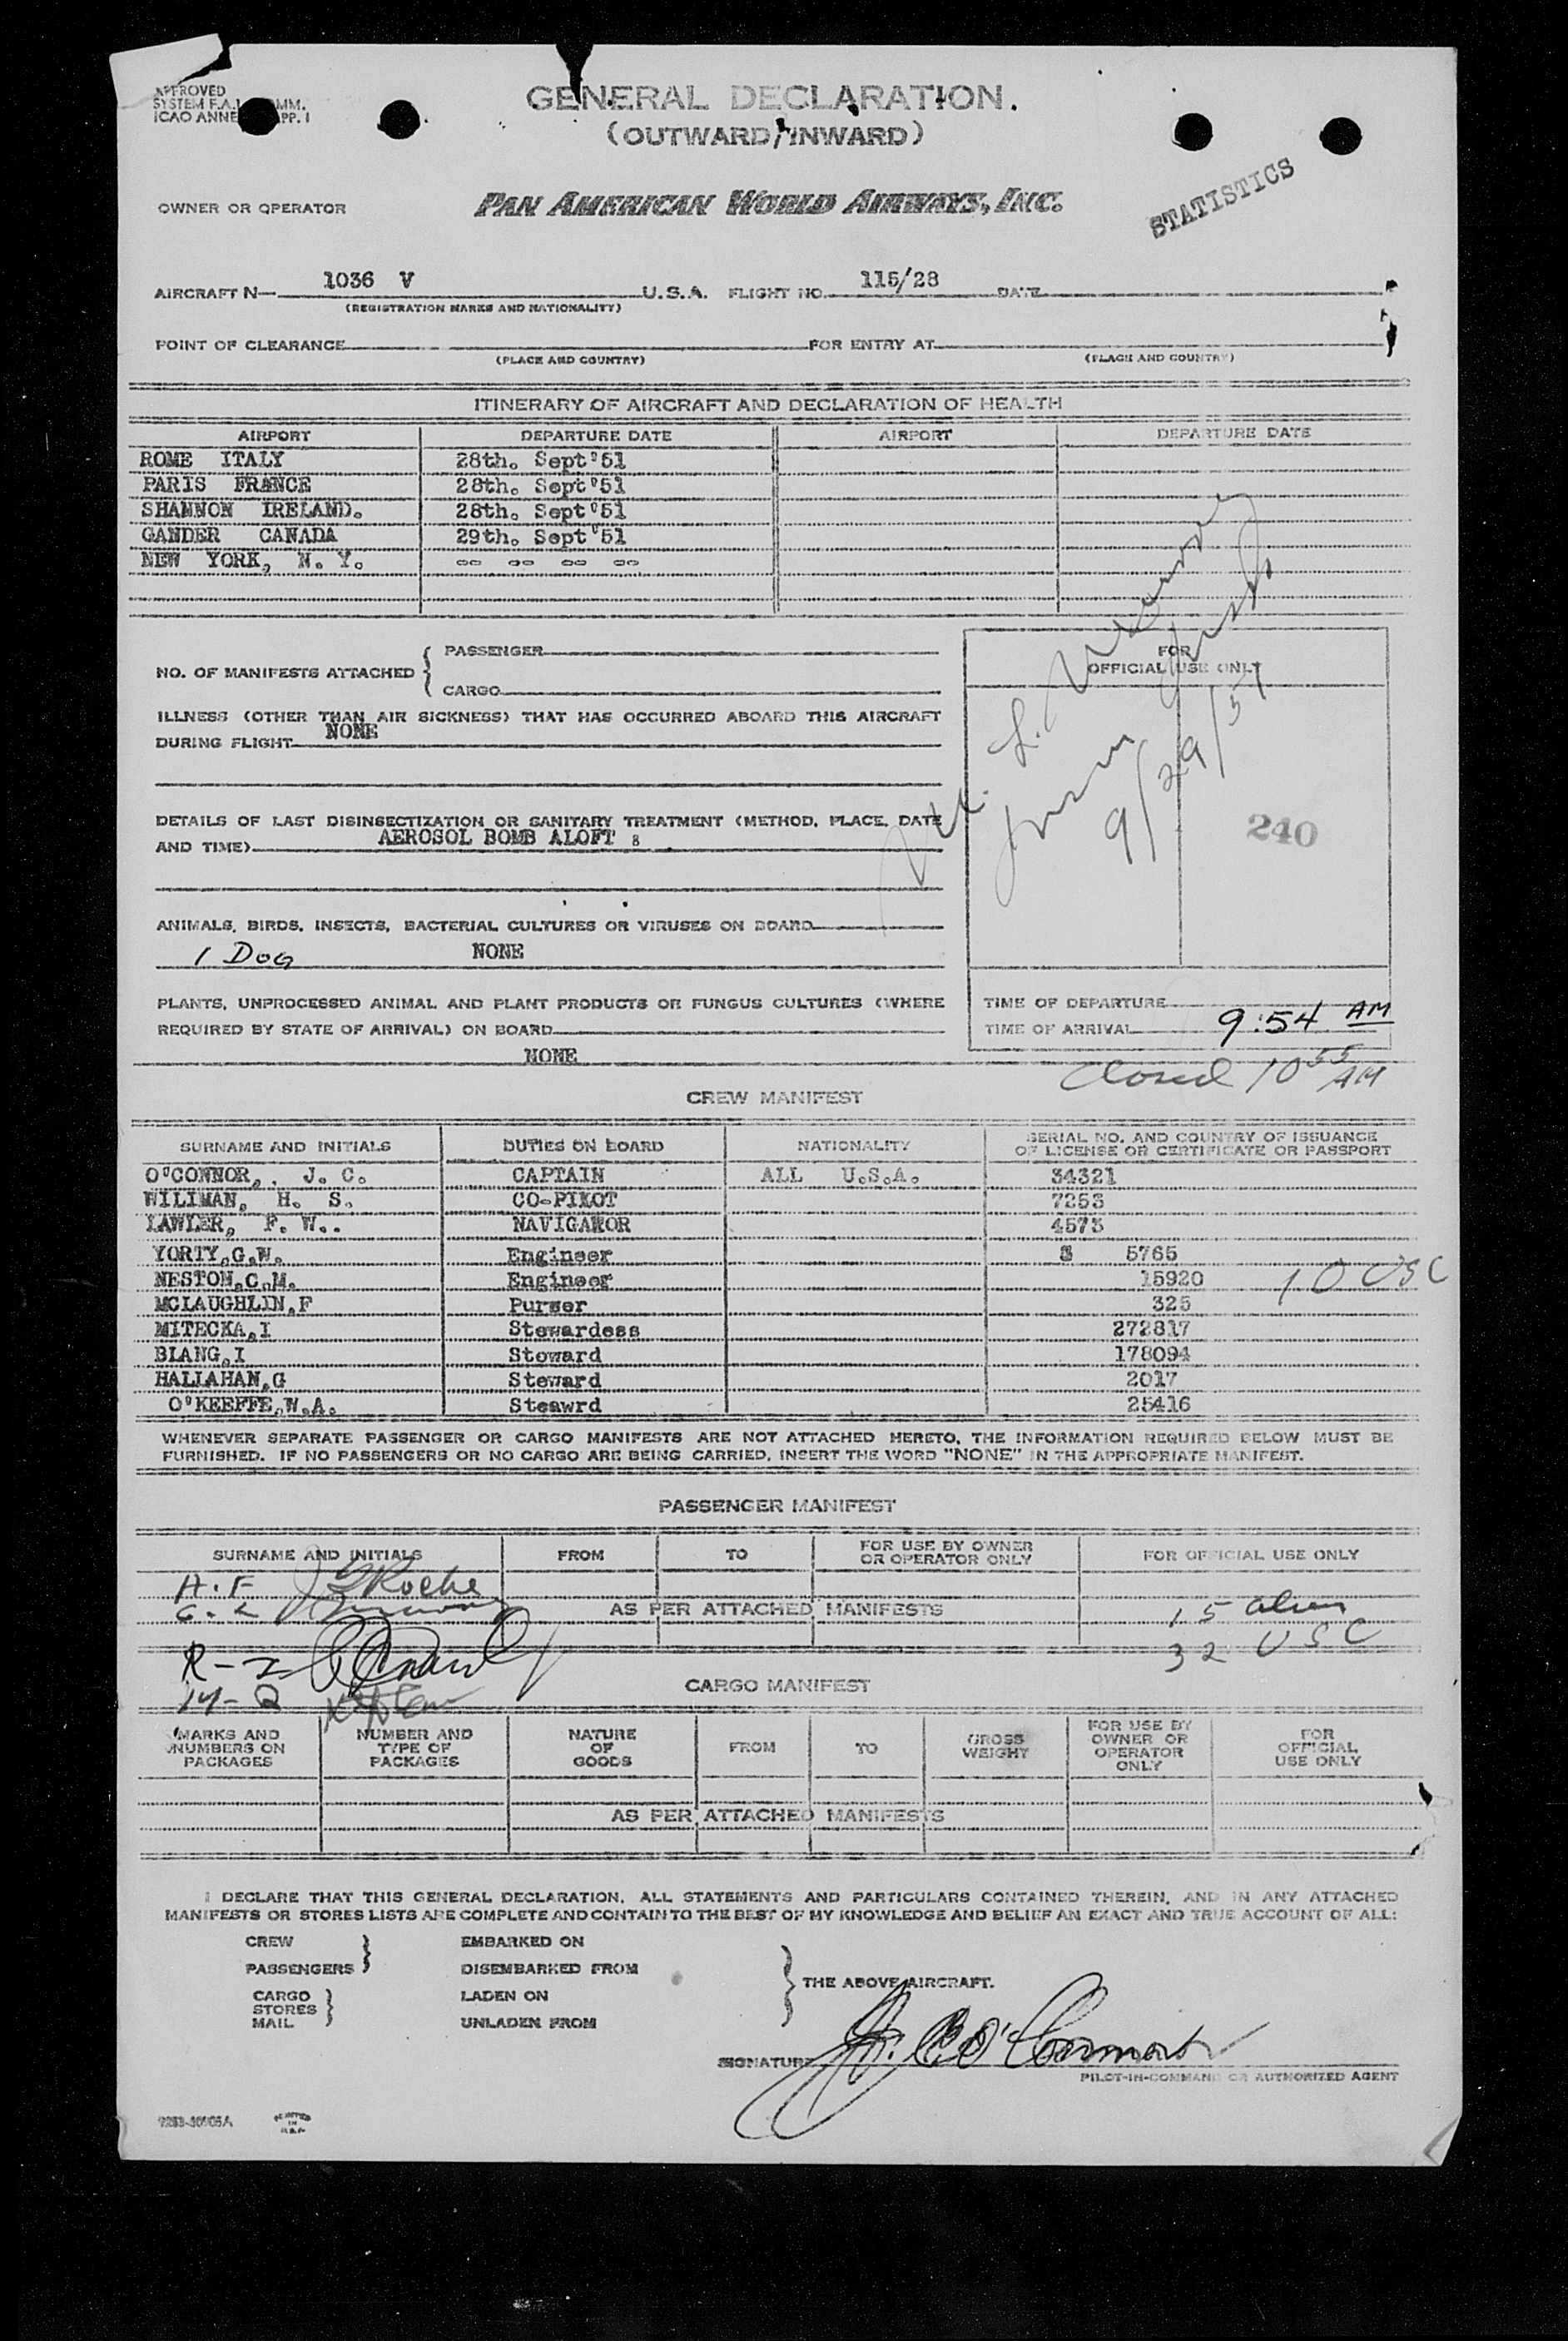 APPROVED
SYSTEM F.A.L. COMM.
ICAO ANNE APP. I
GENERAL DECLARATION.
(OUTWARD/INWARD)
OWNER OR OPERATOR PAN AMERICAN WORLD AIRWAYS, INC.
STATISTICS
AIRCRAFT N— 1036 V U.S.A. FLIGHT NO. 115/28 DATE
(REGISTRATION MARKS AND NATIONALITY)
POINT OF CLEARANCE FOR ENTRY AT
(PLACE AND COUNTRY) (PLACE AND COUNTRY)
ITINERARY OF AIRCRAFT AND DECLARATION OF HEALTH
AIRPORT DEPARTURE DATE AIRPORT DEPARTURE DATE
ROME ITALY 28th. Sept'51
PARIS FRANCE 28th. Sept'51
SHANNON IRELAND. 28th. Sept'51
GANDER CANADA 29th. Sept'51
NEW YORK, N. Y. -- -- -- --
NO. OF MANIFESTS ATTACHED { PASSENGER
CARGO
FOR
OFFICIAL USE ONLY
9/29/51
240
ILLNESS (OTHER THAN AIR SICKNESS) THAT HAS OCCURRED ABOARD THIS AIRCRAFT
DURING FLIGHT NONE
DETAILS OF LAST DISINSECTIZATION OR SANITARY TREATMENT (METHOD, PLACE, DATE
AND TIME) AEROSOL BOMB ALOFT :
ANIMALS, BIRDS, INSECTS, BACTERIAL CULTURES OR VIRUSES ON BOARD
1 DOG NONE
PLANTS, UNPROCESSED ANIMAL AND PLANT PRODUCTS OR FUNGUS CULTURES (WHERE
REQUIRED BY STATE OF ARRIVAL) ON BOARD
NONE
TIME OF DEPARTURE
TIME OF ARRIVAL 9:54 AM
Closed 10 55 AM
CREW MANIFEST
SURNAME AND INITIALS DUTIES ON BOARD NATIONALITY SERIAL NO. AND COUNTRY OF ISSUANCE
OF LICENSE OR CERTIFICATE OR PASSPORT
O'CONNOR,. J. C. CAPTAIN ALL U.S.A. 34321
WILIMAN, H. S. CO-PIKOT 7253
LAWLER, F. W.. NAVIGATOR 4573
YORTY,G.W. Engineer 5765
NESTON,C.M. Engineer 15920 10 USC
MCLAUGHLIN,F Purser 325
MITECKA,I Stewardess 272817
BLANG,I Steward 178094
HALLAHAN,G Steward 2017
O'KEEFFE,W.A. Steawrd 25416
WHENEVER SEPARATE PASSENGER OR CARGO MANIFESTS ARE NOT ATTACHED HERETO, THE INFORMATION REQUIRED BELOW MUST BE
FURNISHED. IF NO PASSENGERS OR NO CARGO ARE BEING CARRIED, INSERT THE WORD "NONE" IN THE APPROPRIATE MANIFEST.
PASSENGER MANIFEST
SURNAME AND INITIALS FROM TO FOR USE BY OWNER
OR OPERATOR ONLY FOR OFFICIAL USE ONLY
H.F Roche
AS PER ATTACHED MANIFESTS 15 alien
32 USC
CARGO MANIFEST
MARKS AND
NUMBERS ON
PACKAGES
NUMBER AND
TYPE OF
PACKAGES
NATURE
OF
GOODS
FROM
TO
GROSS
WEIGHT
FOR USE BY
OWNER OR
OPERATOR
ONLY
FOR
OFFICIAL
USE ONLY
AS PER ATTACHED MANIFESTS
I DECLARE THAT THIS GENERAL DECLARATION, ALL STATEMENTS AND PARTICULARS CONTAINED THEREIN, AND IN ANY ATTACHED
MANIFESTS OR STORES LISTS ARE COMPLETE AND CONTAIN TO THE BEST OF MY KNOWLEDGE AND BELIEF AN EXACT AND TRUE ACCOUNT OF ALL:
CREW EMBARKED ON
PASSENGERS DISEMBARKED FROM
THE ABOVE AIRCRAFT.
CARGO LADEN ON
STORES
MAIL UNLADEN FROM
SIGNATURE
PILOT-IN-COMMAND OR AUTHORIZED AGENT
PRINTED
IN
U.S.A.